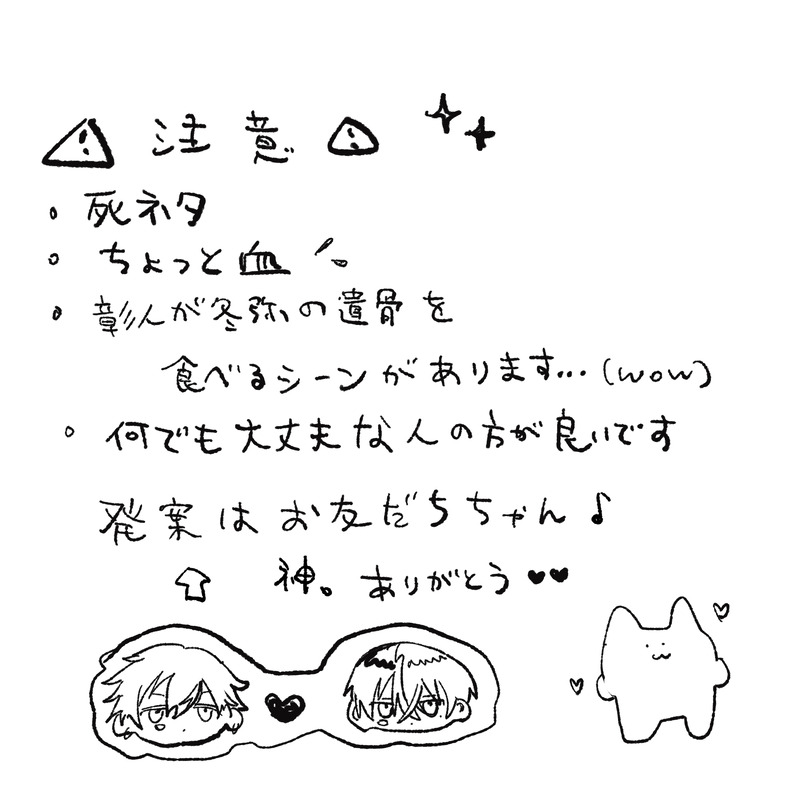 ⚠ 注意 ⚠
・死ネタ
・ちょっと血
・彰人が冬弥の遺骨を
食べるシーンがあります…(wow)
・何でも大丈夫な人の方が良いです
発案はお友だちちゃん♪
⇧ 神。ありがとう♥♥